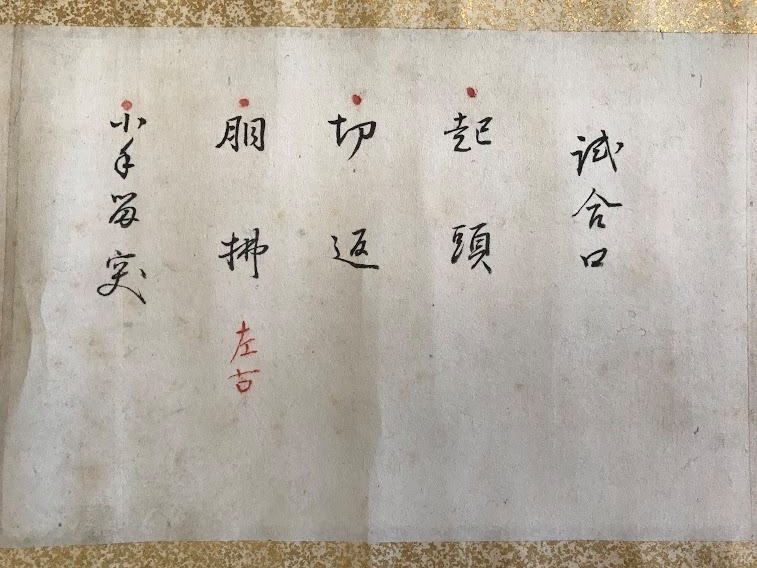 試合口
起頭
切返
胴拂
左右
小手留突